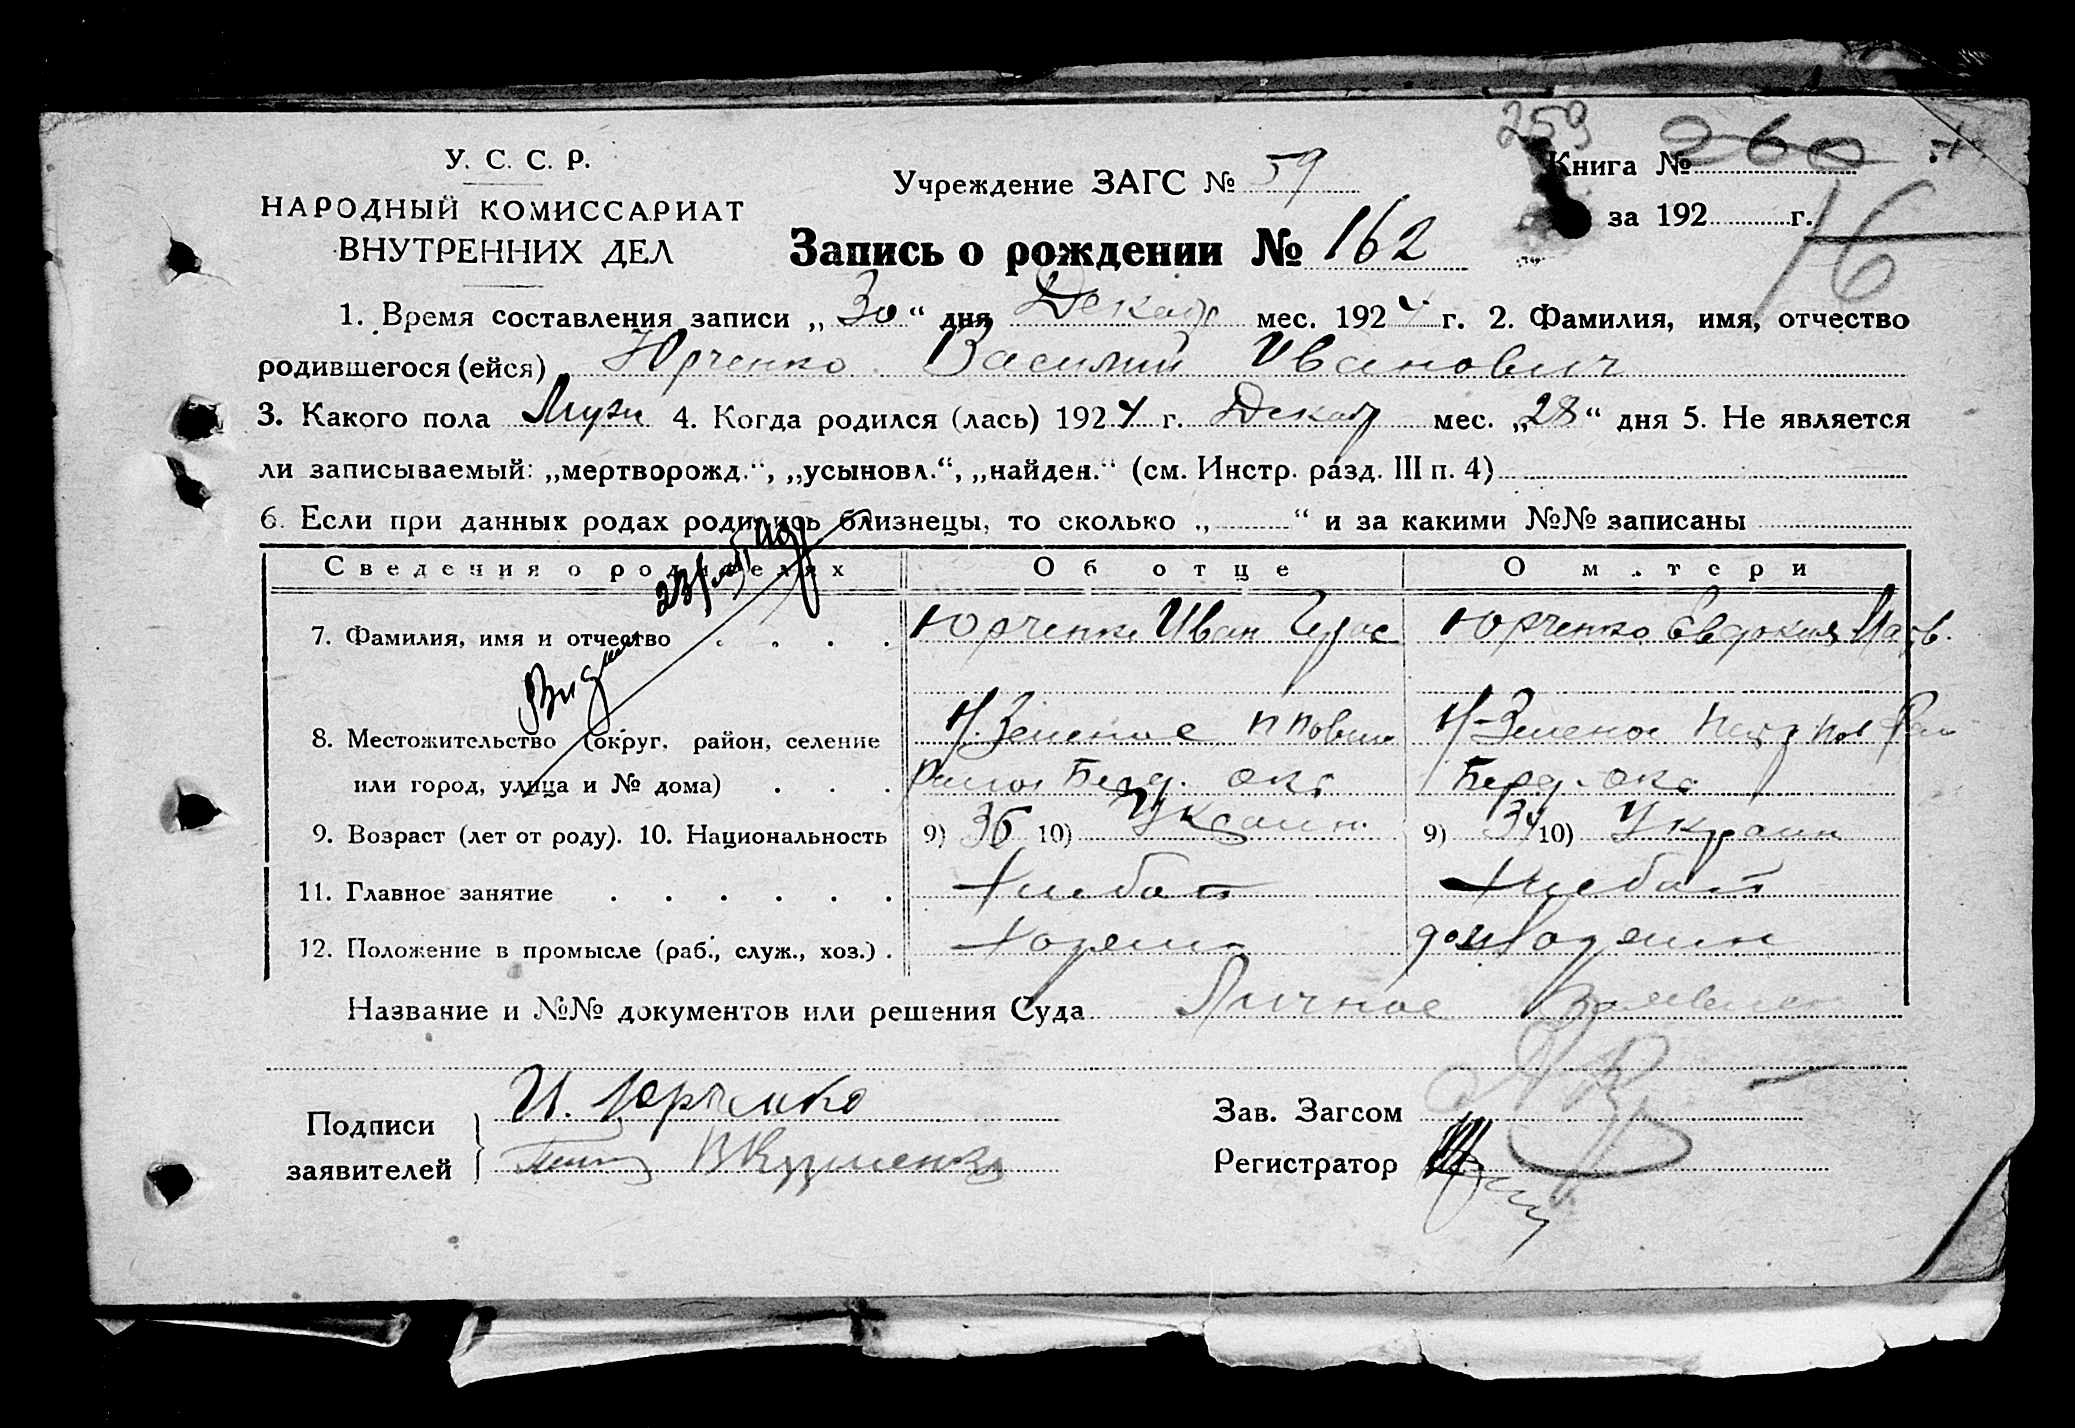 259
У. С. С. Р.
НАРОДНЫЙ КОМИССАРИАТ
ВНУТРЕННИХ ДЕЛ
Учреждение ЗАГС № 59
Книга № 260
за 192 г.
16
Запись о рождении № 162
1. Время составления записи „30“ дня Декабр мес. 1924 г. 2. Фамилия, имя, отчество
родившегося (ейся) Юрченко Василий Иванович
3. Какого пола Муж 4. Когда родился (лась) 1924 г. Декабр мес. „28“ дня 5. Не является
ли записываемый: „мертворожд.“, „усыновл.“, „найден.“ (см. Инстр. разд. III п. 4)
6. Если при данных родах родились близнецы, то сколько „ “ и за какими №№ записаны
Сведения о родителях Об отце О матери
7. Фамилия, имя и отчество . . . . Юрченко Иван Юрченко Евдокия
8. Местожительство (округ, район, селение Н. Зеленое Н-Зеленое
или город, улица и № дома) . . . Берд. окр Берд. окр
9. Возраст (лет от роду). 10. Национальность 9) 36 10) Украин. 9) 34 10) Украин
11. Главное занятие . . . . . . Хлебоп Хлебоп
12. Положение в промысле (раб., служ., хоз.) .
Название и №№ документов или решения Суда Личное Заявлен
Подписи
заявителей
И. Юрченко
В Кузменко
Зав. Загсом
Регистратор